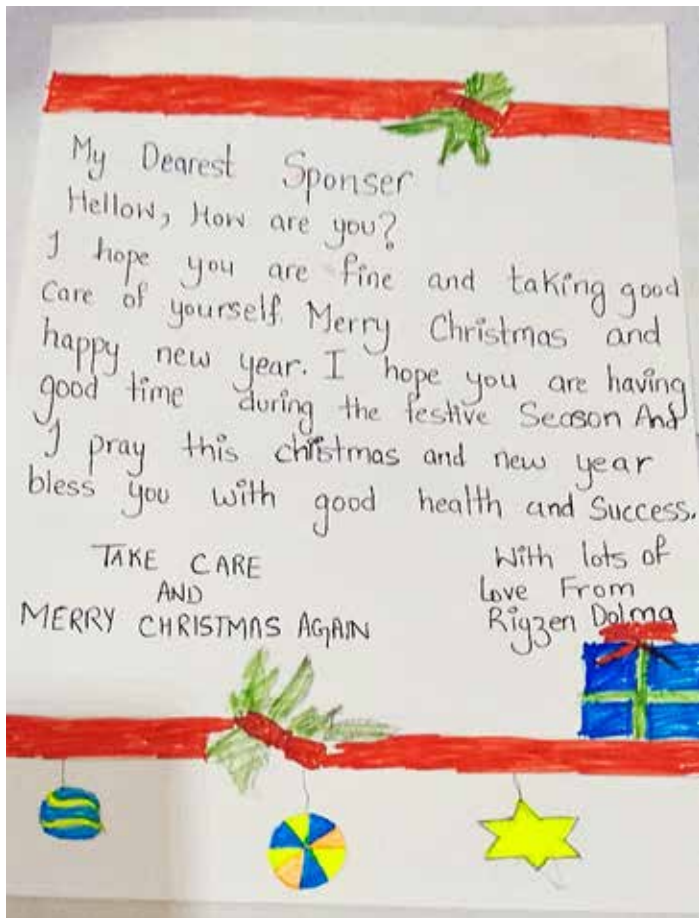 My Dearest Sponser
Hellow, How are you?
I hope you are fine and taking good
Care of yourself. Merry Christmas and
happy new year. I hope you are having
good time during the festive Season And
I pray this christmas and new year
bless you with good health and Success.
TAKE CARE
AND
MERRY CHRISTMAS AGAIN
With lots of
Love From
Rigzen Dolma